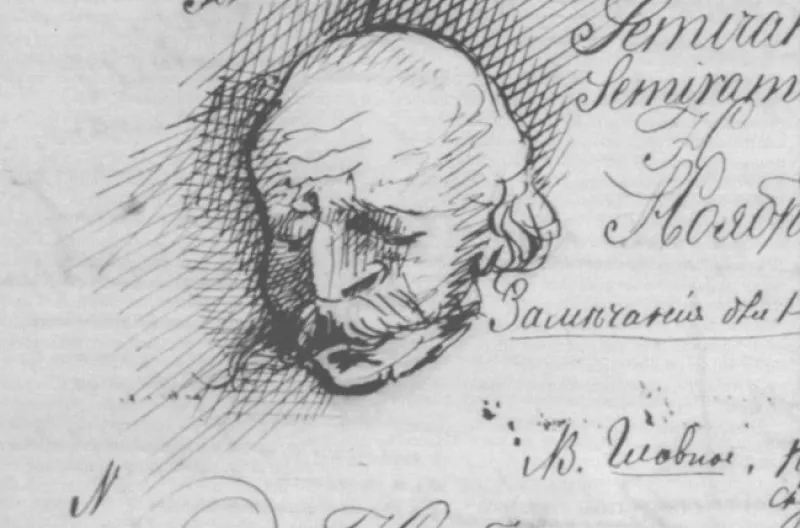 Semiram
Semiram
Н
Ноябр
Замѣчанія для
NB. Главное.
N